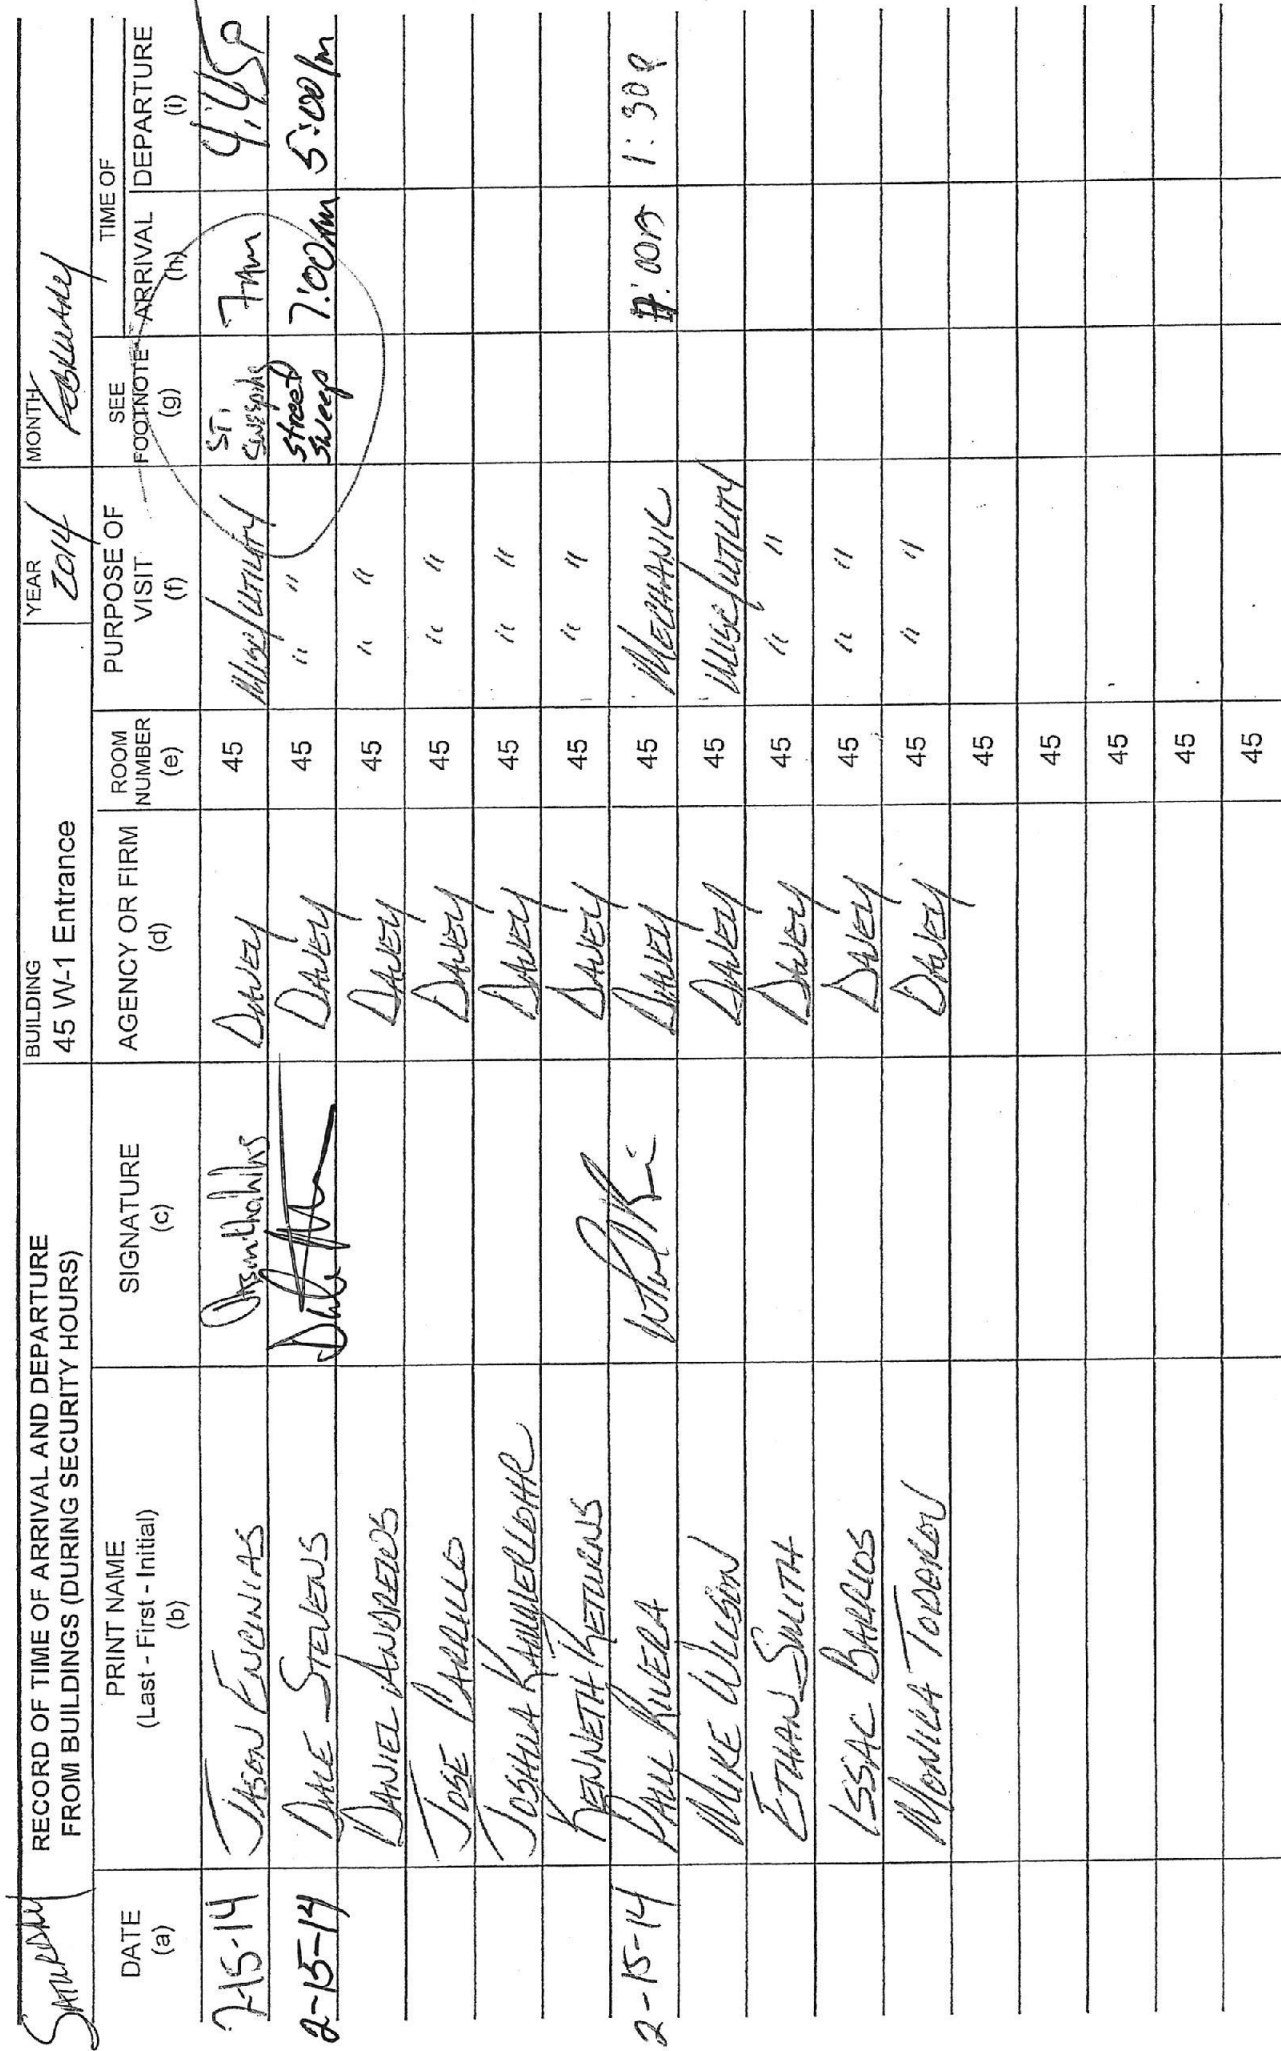 Saturday
RECORD OF TIME OF ARRIVAL AND DEPARTURE
FROM BUILDINGS (DURING SECURITY HOURS)
BUILDING
45 W-1 Entrance
YEAR
2014
MONTH
FEBRUARY
DATE
(a)
PRINT NAME
(Last - First - Initial)
(b)
SIGNATURE
(c)
AGENCY OR FIRM
(d)
ROOM
NUMBER
(e)
PURPOSE OF
VISIT
(f)
SEE
FOOTNOTE
(g)
TIME OF
ARRIVAL
(h)
DEPARTURE
(i)
2-15-14 JASON ENCINIAS DAVEY 45 MISC/UTILITY ST. SWEEPING 7AM 4:45P
2-15-14 DALE STEVENS DAVEY 45 " " Street Sweep 7:00AM 5:00pm
DANIEL ANDREWS DAVEY 45 " "
JOSE CARRILLO DAVEY 45 " "
JOSHUA KAMMERLOHR DAVEY 45 " "
KENNETH KETURNS DAVEY 45 " "
2-15-14 PAUL RIVERA DAVEY 45 MECHANIC 1:30P
MIKE WILSON DAVEY 45 MISC/UTILITY
ETHAN SMITH DAVEY 45 " "
ISSAC BARRIOS DAVEY 45 " "
MONICA DAVEY 45 " "
45
45
45
45
45